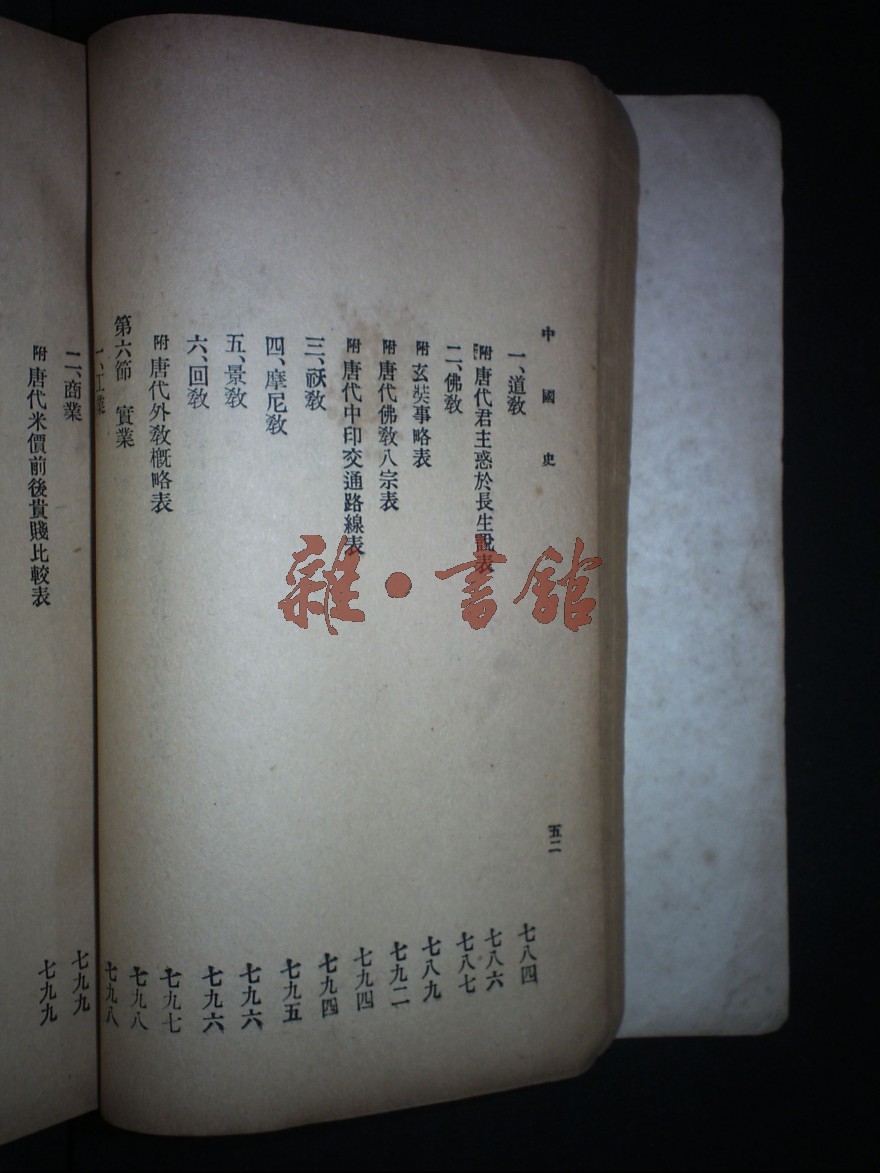 中國史
五二
一、道教 七八四
附 唐代君主惑於長生說表 七八六
二、佛教 七八七
附 玄奘事略表 七八九
附 唐代佛教八宗表 七九二
附 唐代中印交通路線表 七九四
三、祆教 七九四
四、摩尼教 七九五
五、景教 七九六
六、回教 七九六
附 唐代外教概略表 七九七
第六節 實業 七九八
一、工業 七九八
二、商業 七九九
附 唐代米價前後貴賤比較表 七九九
雜·書館